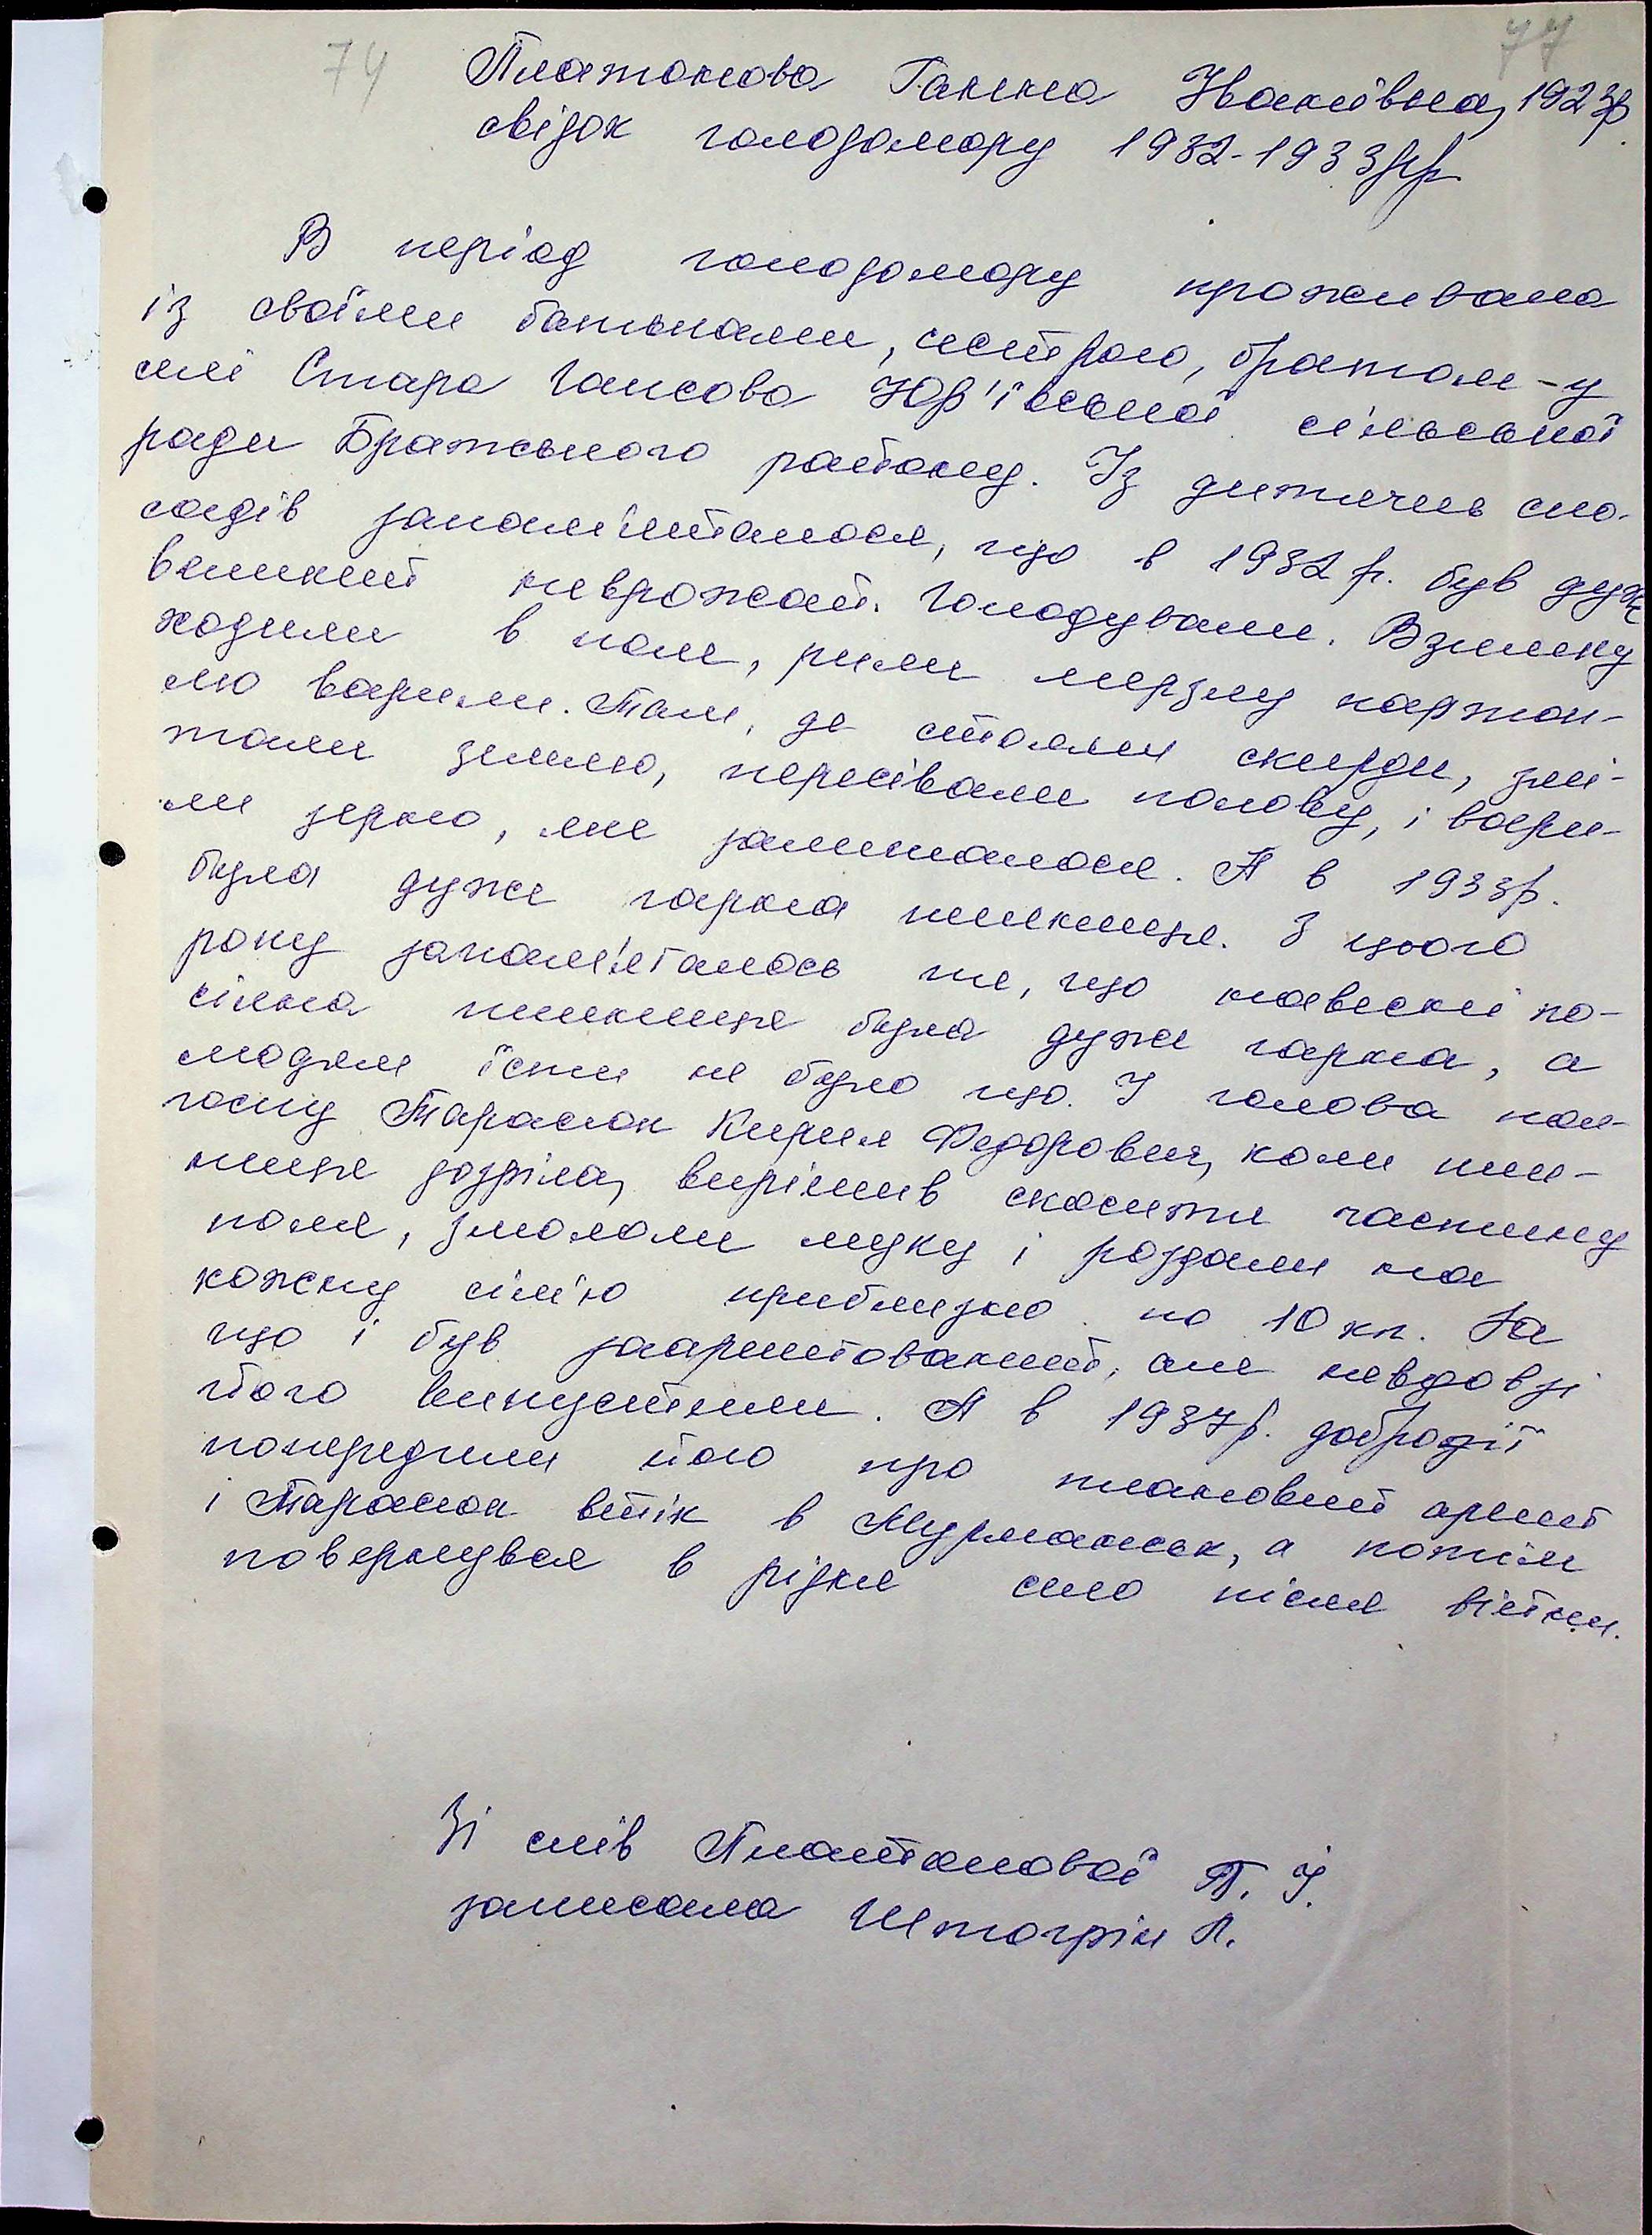 74
77
Платонова Ганна Іванівна, 1923р.
свідок голодомору 1932-1933рр
В період голодомору проживала
із своїми батьками, сестрою, братом - у
селі Стара Гансова Юр'ївської сільської
ради Братського району. Із дитячих спо-
гадів запам'яталося, що в 1932 р. був дуже
великий неврожай. Голодували. Взимку
ходили в поле, рили мерзлу картоп-
лю варили. Там, де стояли скирди, змі-
тали землю, пересівали полову, і вари-
ли зерно, яке залишалося. А в 1933р.
була дуже гарна пшениця. З цього
року запам'яталось те, що навесні по-
сіяна пшениця була дуже гарна, а
людям їсти не було що. І голова кол-
госпу Тарасюк Кирил Федорович, коли пше-
ниця дозріла, вирішив скосити частину
поля, змололи муку і роздали на
кожну сім'ю приблизно по 10 кг. За
що і був заарештований, але невдовзі
його випустили. А в 1937р. добродії
попередили його про плановий арешт
і Тарасюк втік в Мурманськ, а потім
повернувся в рідне село після війни.
Зі слів Платонової Г. І.
записала Штогрін Л.